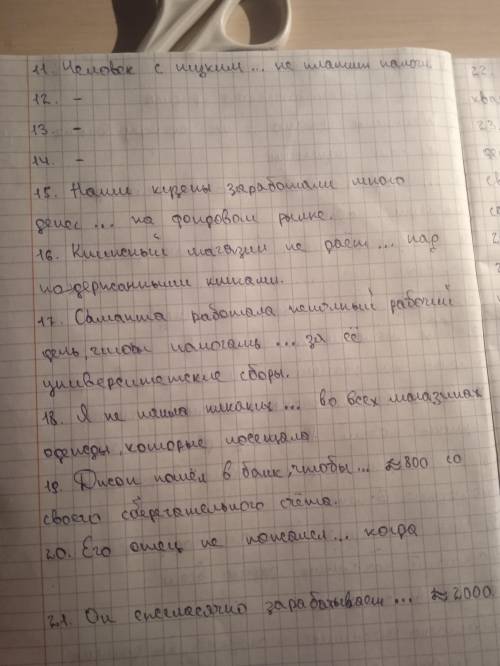 11. Человек с низким ... не платит налоги.
12. -
13. -
14. -
15. Наши кузены заработали много
денег ... на фондовом рынке.
16. Книжный магазин не даёт ... над
подержанными книгами.
17. Саманта работала неполный рабочий
день, чтобы помогать ... за её
университетские сборы.
18. Я не нашла никаких ... во всех магазинах
одежды, которые посещала
19. Джон пошёл в банк, чтобы ... ≈800 со
своего сберегательного счёта.
20. Его отец не когда
21. Он ежемесячно зарабатывает ... ≈2000.
22.
ква
23.